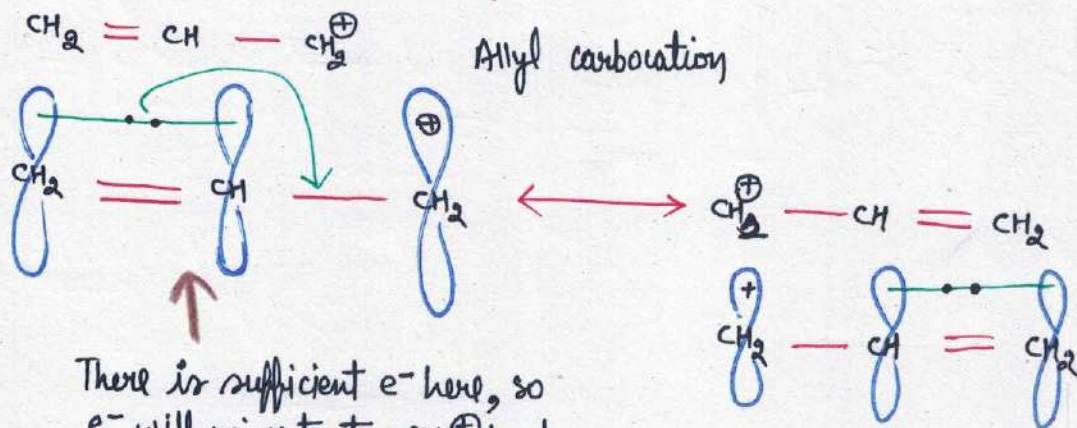 CH2 = CH — CH2⊕
Allyl carbocation
⊕
CH2 = CH — CH2 ⟷ CH2⊕ — CH = CH2
+
CH2 — CH = CH2
There is sufficient e⁻ here, so